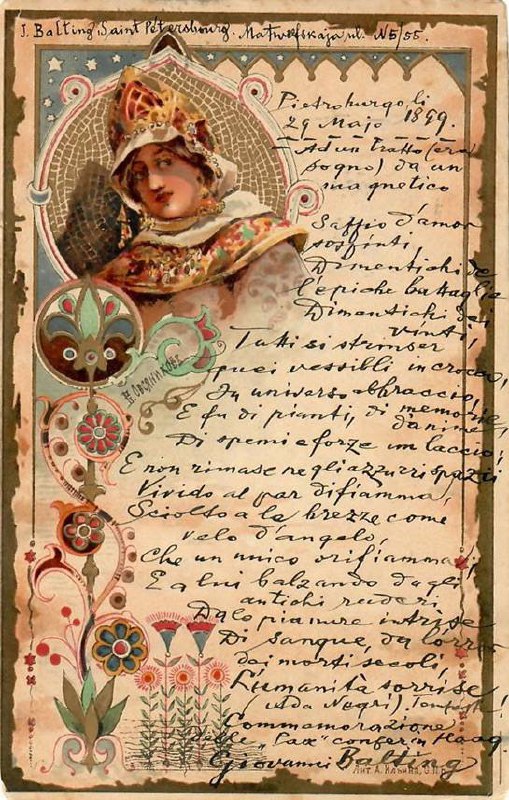 J. Balting, Saint Petersbourg. Matwefskaja ul. N 5/55.
Pietroburgo, li
29 Majo 1899.
Ad un tratto (era
sogno) da un
magnetico
Soffio d'amor
sospinti,
Dimentichi de
l'epiche battaglie
Dimentichi dei
vinti,
Tutti si strinser
quei vessilli in croce,
In universo abbraccio,
E fu di pianti, di memorie,
d'anime
Di spemi e forze un laccio;
E non rimase ne gli azzurri spazii
Vivido al par di fiamma,
Sciolto a la brezze come
velo d'angelo,
Che un unico orifiamma;
E a lui balzando dagli
antichi ruderi
Da lo pianure intrise
Di sangue, da
dai morti secoli,
L'umanità sorrise!
(Ada Negri),
Commemorazione
delle "Pax" conferin Haag.
Giovanni Balting
Н. Овсянниковъ
Лит. А. Ильина, С.П.Б.